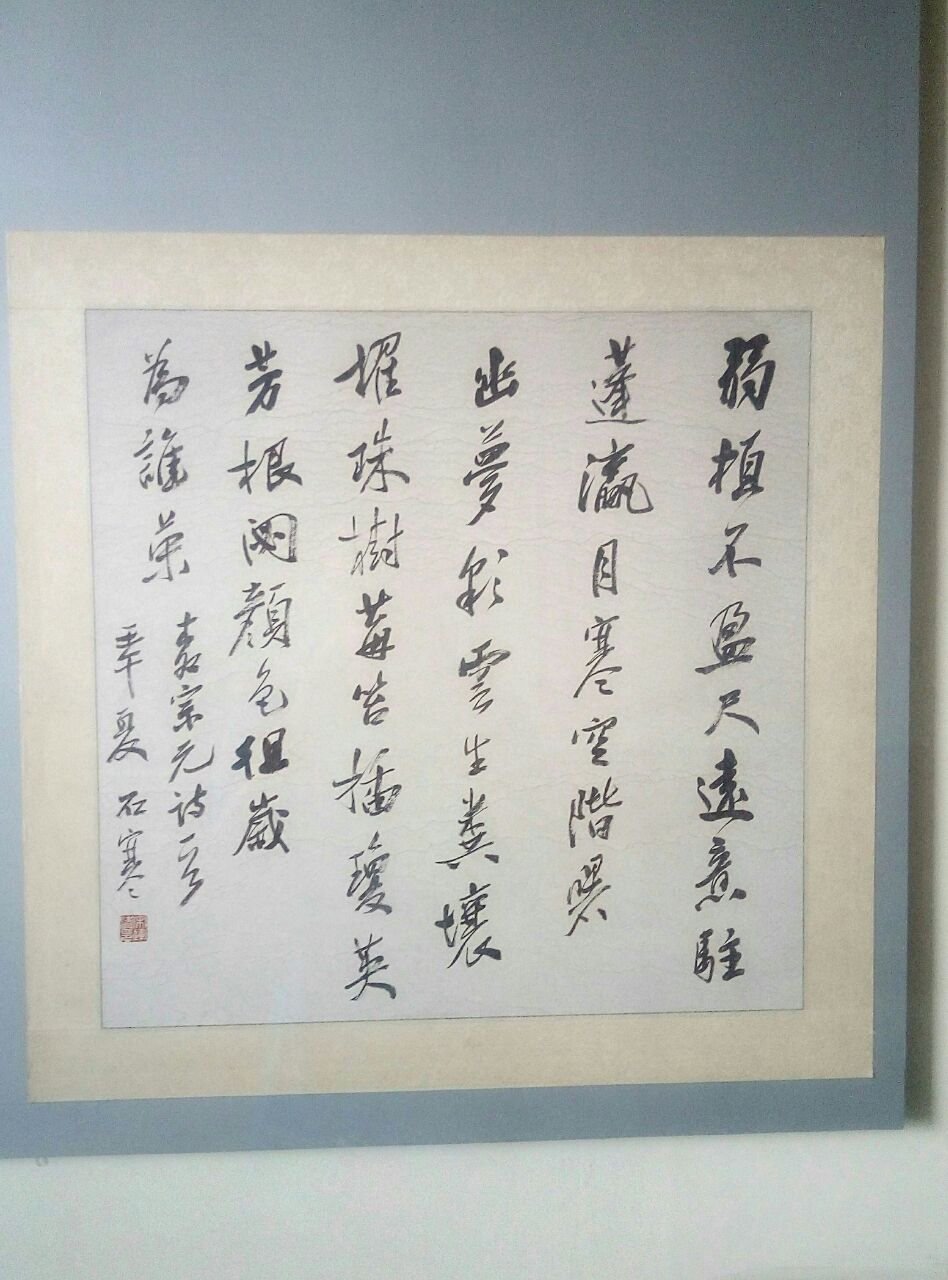 弱植不盈尺遠意駐
蓬瀛月寒空階曙
幽夢彩雲生糞壤
擢珠樹莓苔插瓊英
芳根閟顏色徂歲
為誰榮
宗元詩一首
夏石寒